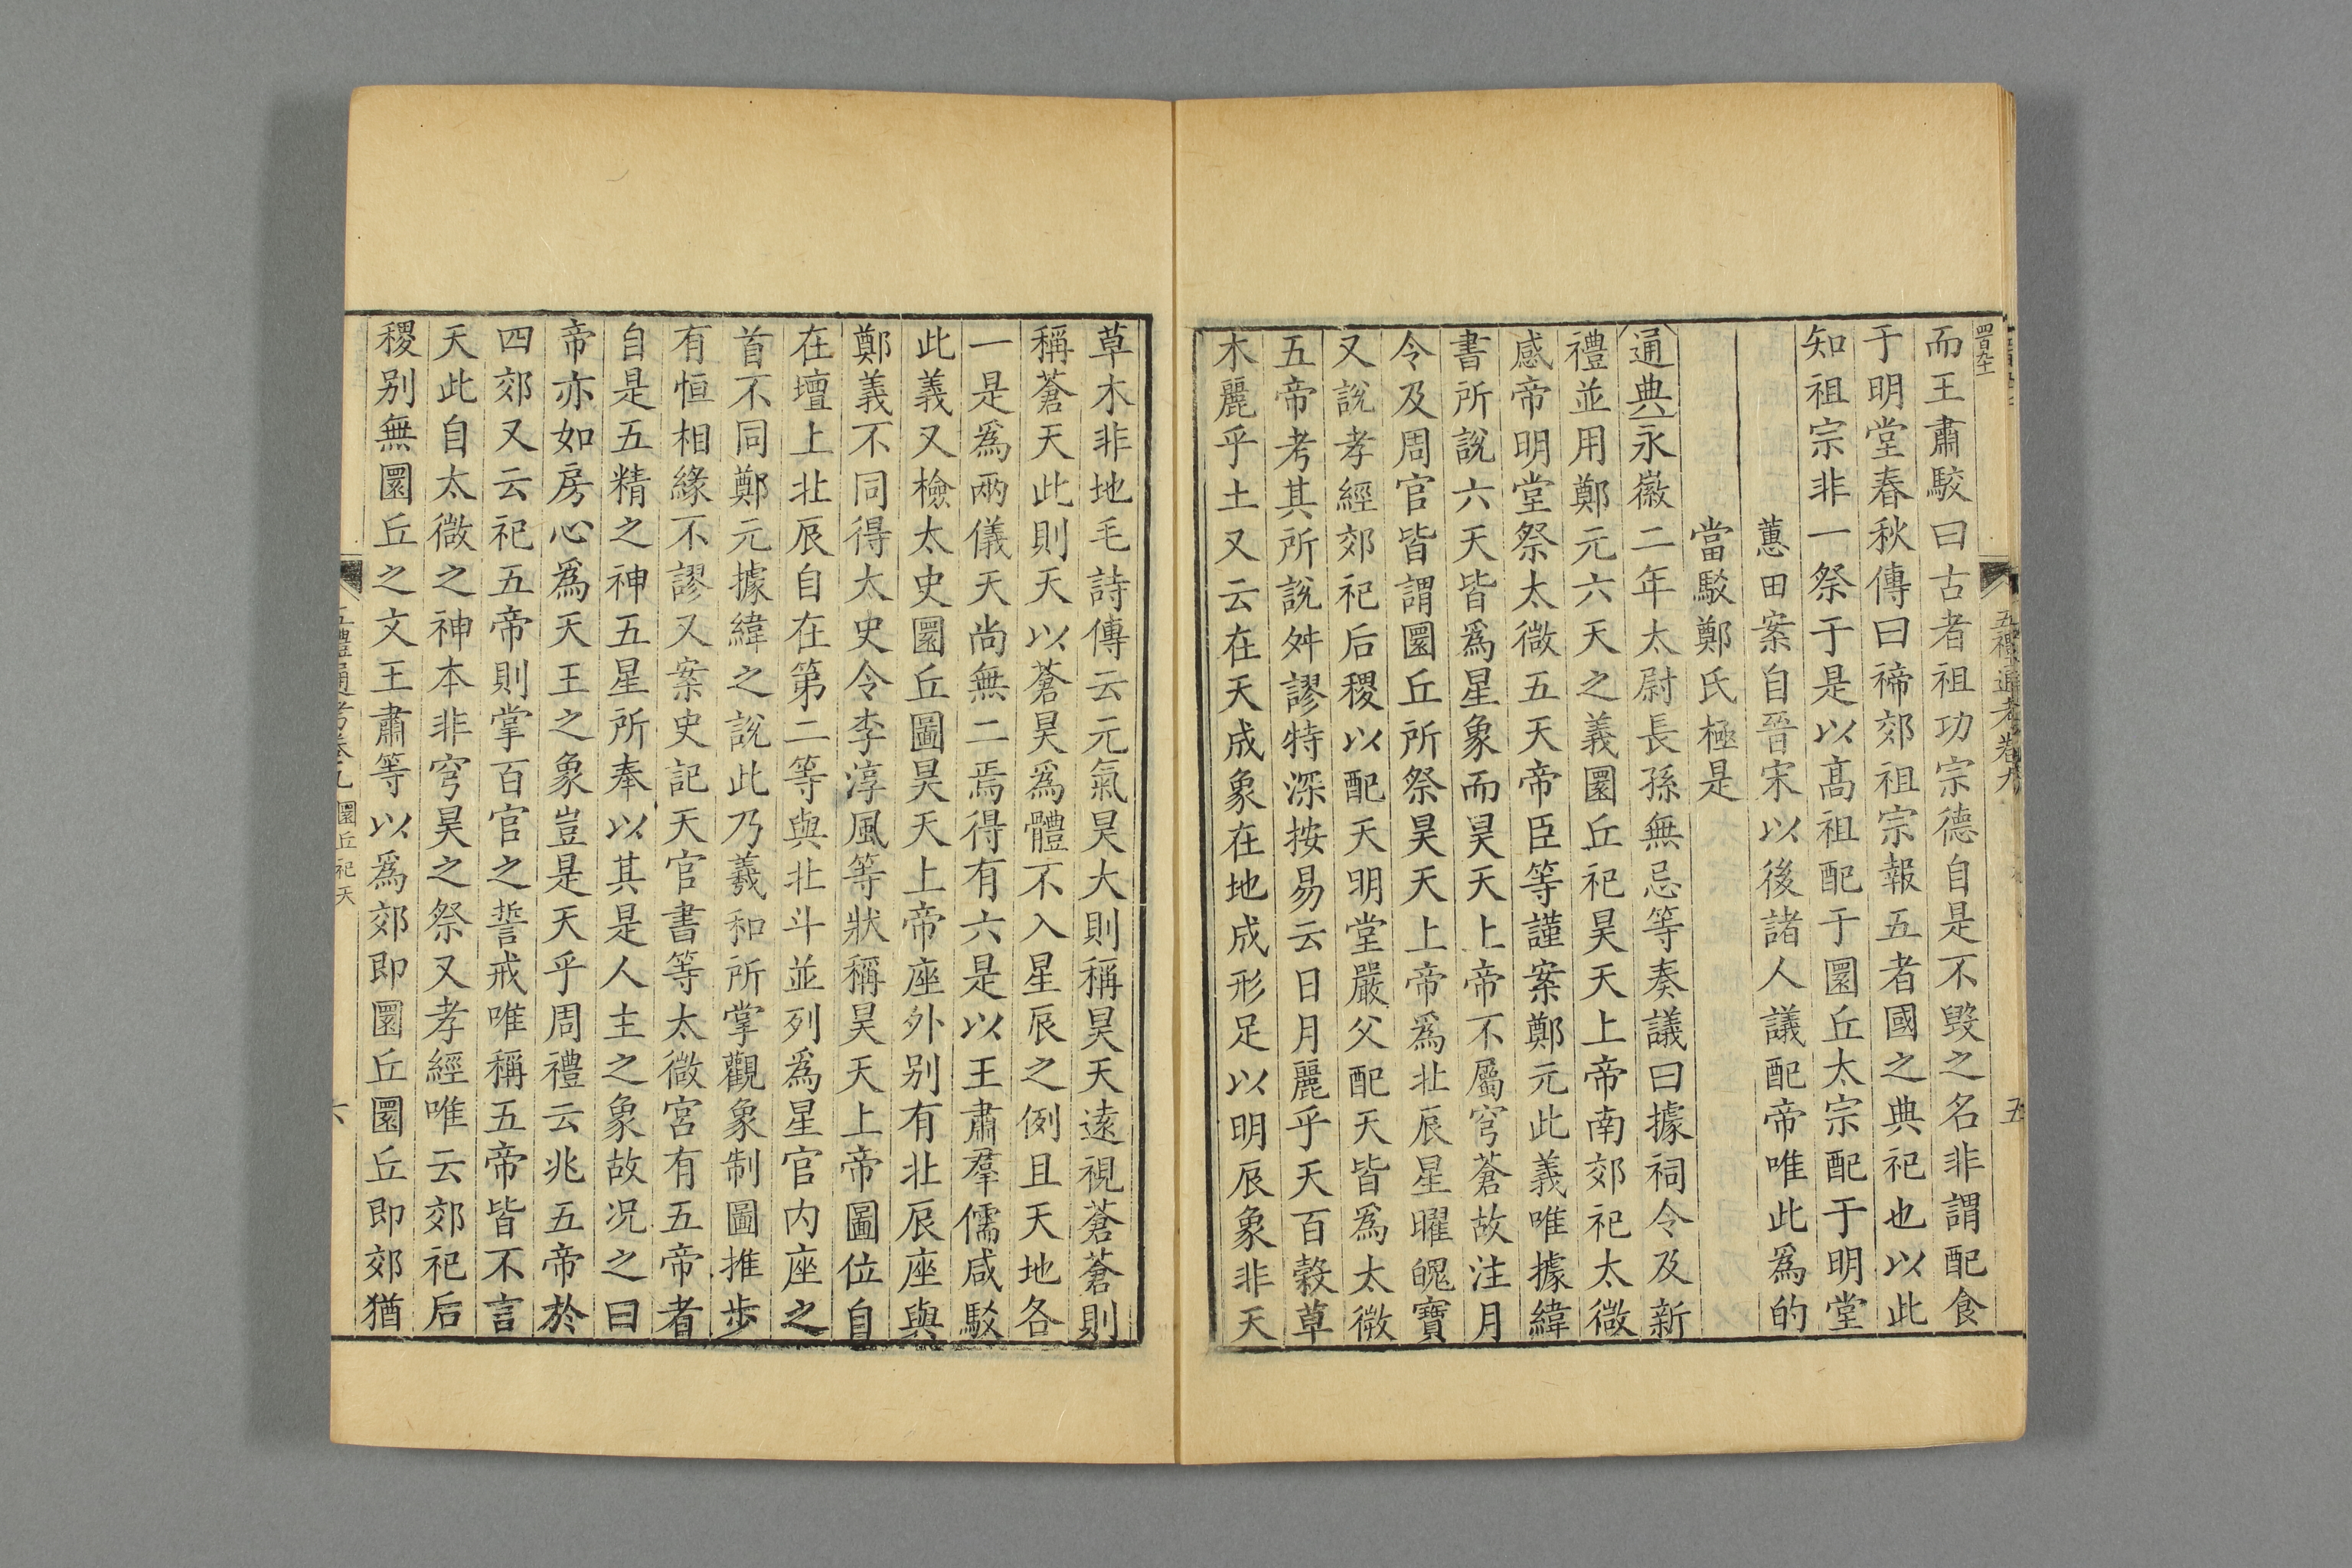 五禮通考卷九
五
而王肅駮曰古者祖功宗德自是不毀之名非謂配食
于明堂春秋傳曰禘郊祖宗報五者國之典祀也以此
知祖宗非一祭于是以髙祖配于圜丘太宗配于明堂
蕙田案自晉宋以後諸人議配帝唯此爲的
當駁鄭氏極是
通典永徽二年太尉長孫無忌等奏議曰據祠令及新
禮並用鄭元六天之義圜丘祀昊天上帝南郊祀太微
感帝明堂祭太微五天帝臣等謹案鄭元此義唯據緯
書所說六天皆爲星象而昊天上帝不屬穹蒼故注月
令及周官皆謂圜丘所祭昊天上帝爲北辰星曜魄寶
又說孝經郊祀后稷以配天明堂嚴父配天皆爲太微
五帝考其所說舛謬特深按易云日月麗乎天百穀草
木麗乎土又云在天成象在地成形足以明辰象非天
草木非地毛詩傳云元氣昊大則稱昊天遠視蒼蒼則
稱蒼天此則天以蒼昊爲體不入星辰之例且天地各
一是爲兩儀天尚無二焉得有六是以王肅羣儒咸駁
此義又檢太史圜丘圖昊天上帝座外别有北辰座與
鄭義不同得太史令李淳風等狀稱昊天上帝圖位自
在壇上北辰自在第二等與北斗並列爲星官内座之
首不同鄭元據緯之說此乃羲和所掌觀象制圖推步
有恒相緣不謬又案史記天官書等太微宫有五帝者
自是五精之神五星所奉以其是人主之象故况之曰
帝亦如房心爲天王之象豈是天乎周禮云兆五帝於
四郊又云祀五帝則掌百官之誓戒唯稱五帝皆不言
天此自太微之神本非穹昊之祭又孝經唯云郊祀后
稷别無圜丘之文王肅等以爲郊即圜丘圜丘即郊猶
五禮通考卷九 圜丘祀天
六